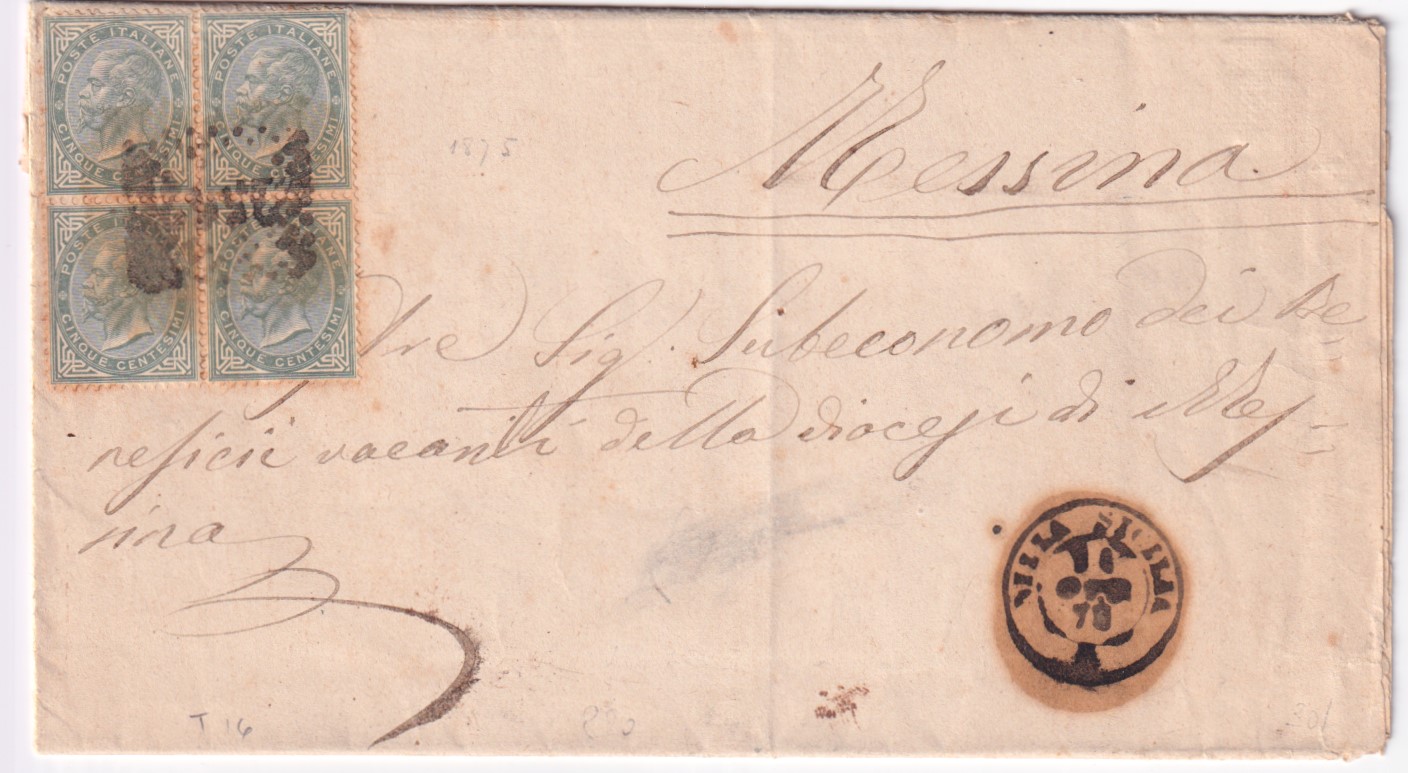 POSTE ITALIANE
CINQUE CENTESIMI
POSTE ITALIANE
CINQUE CENTESIMI
POSTE ITALIANE
CINQUE CENTESIMI
POSTE ITALIANE
CINQUE CENTESIMI
1875
Messina
Sig. Subeconomo dei Be=
neficii vacanti della diocesi di Mes=
sina
SICILIA
OTT
T 14